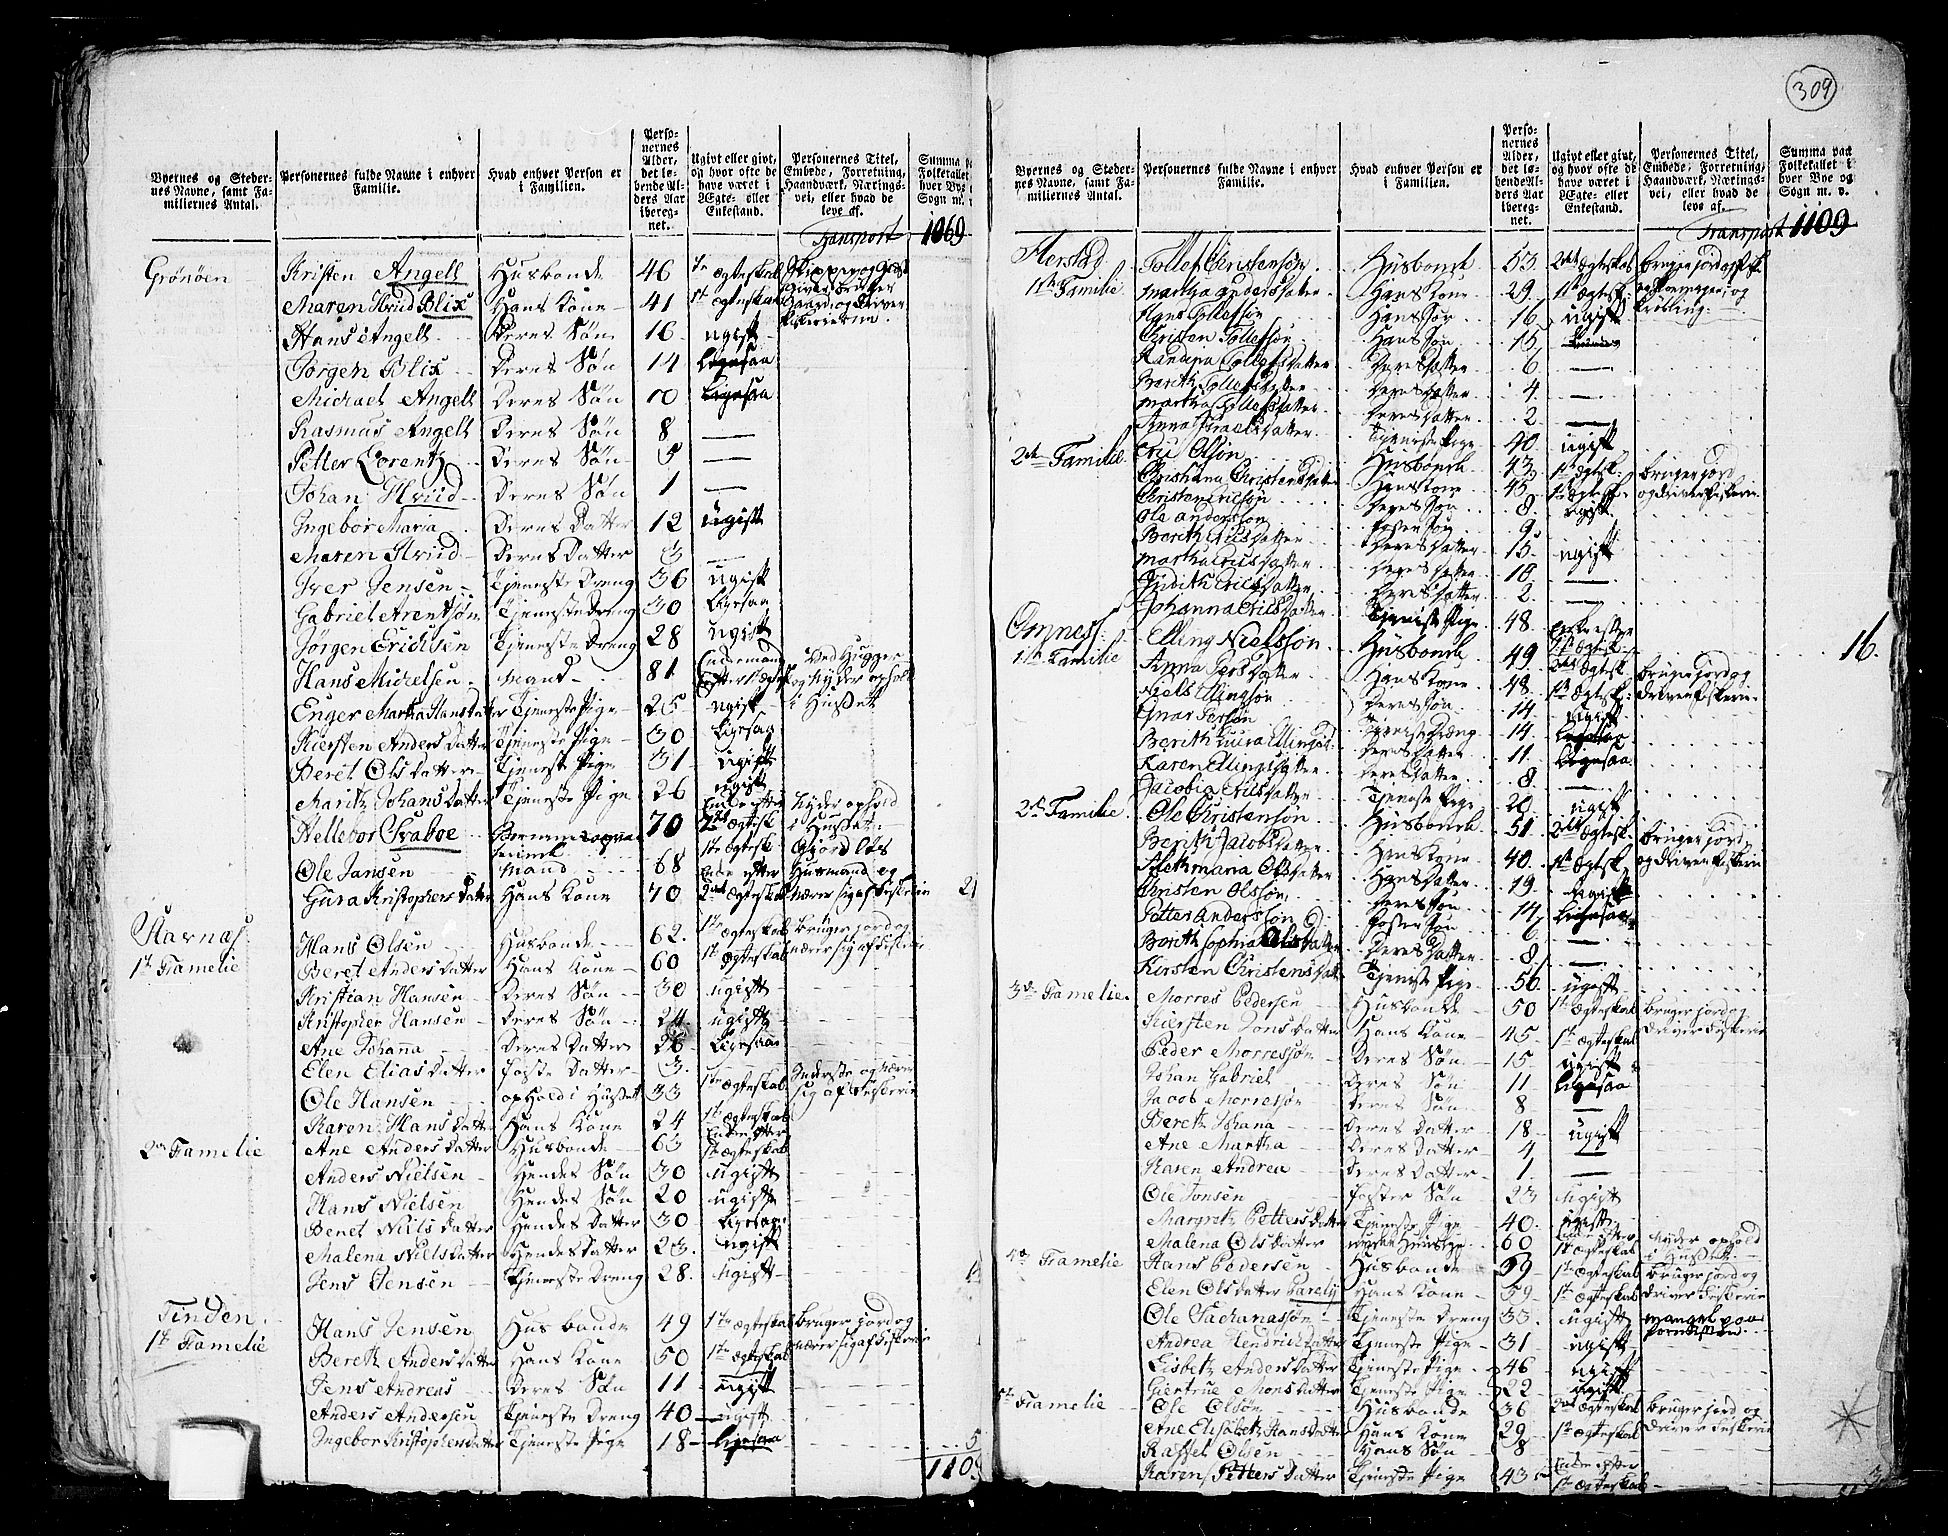 309
Byernes og Steder-
nes Navne, samt Fa-
miliernes Antal.
Personernes fulde Navne i enhver
Familie.
Hvad enhver Person er
i Familien.
Perso-
nernes
Alder,
det lø-
bende Al-
ders Aar
iberegnet.
Ugivt eller givt,
og hvor ofte de
have været i
Ægte- eller
Enkestand.
Personernes Titel,
Embede, Forretning,
Haandværk, Nærings-
vei, eller hvad de
leve af.
Summa paa
Folketallet i
hver Bye og
Sogn m. v.
Transport 1069
Grönöen Kristen Angell Husbonde 46 1te ægteskab
Maren Hviid Blix Hans Kone 41 1te ægteskab
Hans Angell Deres Søn 16 ugift
Jørgen Blix Deres Søn 14 Ligesaa
Michael Angell Deres Søn 10 Ligesaa
Rasmus Angell Deres Søn 8 —
Petter Lorentz Deres Søn 5 —
Johan Hviid Deres Søn 1 —
Ingebor Maria Deres Datter 12 ugift
Maren Hviid Deres Datter 3 —
Iver Jensen Tjeneste Dreng 36 ugift
Gabriel Arentsøn Tjeneste Dreng 30 Ligesaa
Jørgen Erichsen Tjeneste Dreng 28 ugift
Hans Michelsen Mand 81 Ved Hugger
og Nyder ophold
i Huset
Enger Martha Hansdatter Tjeneste Pige 25 ugift
Kiersten Anders Datter Tjeneste Pige 30 Ligesaa
Beret Ols Datter Tjeneste Pige 31 ugift
Maritz Johans Datter Tjeneste Pige 26 ugift
Hellebor Fraboe 70 Nyder ophold
i Huset
Ole Jansen Mand 68 1te ægtesk Gjordløs
Husmand og
Gura Kristophers Datter Hans Kone 70 nærer sig af Fiskerie 21
Havnas
1te Famelie Hans Olsen Husbonde 62 1te ægteskab bruger jord og
Beret Anders Datter Hans Kone 60 1te ægteskab nærer sig af Fiskerie
Kristian Hansen Deres Søn 30 ugift
Kristopher Hansen Deres Søn 24 ugift
Ane Johanna Deres Datter 26 Ligesaa
Elen Elias Datter foste Datter 3
Ole Hansen ophold i Huset 33 1te ægteskab Inderste og nærer
sig af Fiskerie
Karen Hans Datter Hans Kone 24 1te ægteskab
2den Famelie Ane Anders Datter Husbonde 63 Enke efter
1te ægteskab
Anders Nielsen Hendes Søn 30 ugift
Hans Nielsen Hendes Søn 20 ugift
Beret Niils Datter Hendes Datter 30 Ligesaa
Malena Niels Datter Hendes Datter 23 ugift
Jens Jensen Tjeneste Dreng 28 ugift
Tinden
1te Famelie Hans Jensen Husbonde 49 1te ægteskab bruger jord og
Bereth Anders Datter Hans Kone 50 1te ægteskab nærer sig af Fiskerie
Jens Andreas Deres Søn 11 ugift
Anders Andersen Tjeneste Dreng 40 ugift
Ingebor Kristophers Datter Tjeneste Pige 18 Ligesaa 5
1109
Byernes og Steder-
nes Navne, samt Fa-
miliernes Antal.
Personernes fulde Navne i enhver
Familie.
Hvad enhver Person er
i Familien.
Perso-
nernes
Alder,
det lø-
bende Al-
ders Aar
iberegnet.
Ugivt eller givt,
og hvor ofte de
have været i
Ægte- eller
Enkestand.
Personernes Titel,
Embede, Forretning,
Haandværk, Nærings-
vei, eller hvad de
leve af.
Summa paa
Folketallet i
hver Bye og
Sogn m. v.
Transport 1109
Herstad Tollef Christensøn Husbonde 53
1te Familie Martha Andersdatter Hans Kone 29
Hans Tollefsøn Hans søn 16 ugift
Christen Tollefsøn Hans søn 15
Randina Tollefsdatter Deres datter 6 —
Berith Tollefsdatter Deres datter 4 —
Martha Tollefsdatter Deres datter 2 —
Anna Israelsdatter Tjeneste Pige 40 ugift
2den Familie Eric Olsøn Husbonde 43 bruger jord
Christiana Christensdatter Hans Kone 45 og driver fiskerie
Christen Ericsøn Deres søn 8 ugift
Ole Andersøn Foster søn 9
Berith Ericsdatter Deres datter 15 ugift
Martha Ericsdatter Deres datter 10 —
Judith Ericsdatter Deres datter 2 —
Johanna Ericsdatter Tjeneste Pige 48
Omnes
1te Familie Elling Nielssøn Husbonde 49 bruger jord og 16
Anna Persdatter Hans Kone 48 driver fiskerie
Niels Ellingsøn Deres søn 14 ugift
Einar Persøn Tjeneste Dreng 14 Ligesaa
Berith Gura Ellingsd. Deres datter 11 Ligesaa
Karen Ellingsdatter Deres datter 8
Jacobia Ericsdatter Tjeneste Pige 20 ugift
2den Familie Ole Christensøn Husbonde 51 bruger jord
Berith Jacobsdatter Hans Kone 40 og driver fiskerie
Aleth Maria Olsdatter Hans datter 19 ugift
Christen Olsøn Deres søn 14 Ligesaa
Petter Anderssøn Foster søn 6 —
Berith Sophia Olsdatter Deres datter 8 —
Kirsten Christensdatter Tjeneste Pige 56 ugift
3de Famelie Morres Pedersen Husbonde 50 1te ægteskab bruger jord og
Kiersten Jons Datter Hans Kone 45 1te ægteskab driver Fiskerie
Peder Morressøn Deres Søn 15 ugift
Johan Gabriel Deres Søn 11 Ligesaa
Jacob Morressøn Deres Søn 8 —
Bereth Johana Deres Datter 18 ugift
Ane Martha Deres Datter 4 —
Karen Andrea Deres Datter 1 —
Ole Jonsen foster Søn 23 ugift
Margretz Petters Datter Tjeneste Pige 40 ugift
Malena Ols Datter 60 1te ægteskab Nyder ophold
i Huset
4de Famelie Hans Pedersen Husbonde 39 1te ægteskab bruger jord og
Elen Ols Datter Parely Hans Kone 59 1te ægteskab driver Fiskerie
Ole Zachariassøn Tjeneste Dreng 33 ugift mangel paa
Andrea Hendrichs Datter Tjeneste Pige 31 ugift
Lisbetz Anders Datter Tjeneste Pige 46 ugift
Giertrue Mons Datter Tjeneste Pige 22 ugift
5te Famelie Ole Olsøn Husbonde 36 2det ægteskab bruger jord og
Ane Elisabetz Hans Datter Hans Kone 29 1te ægteskab driver Fiskerie
Raffel Olsen Hans Søn 8
Karen Petters Datter Tjeneste Pige 43 Enke efter
1te ægteskab